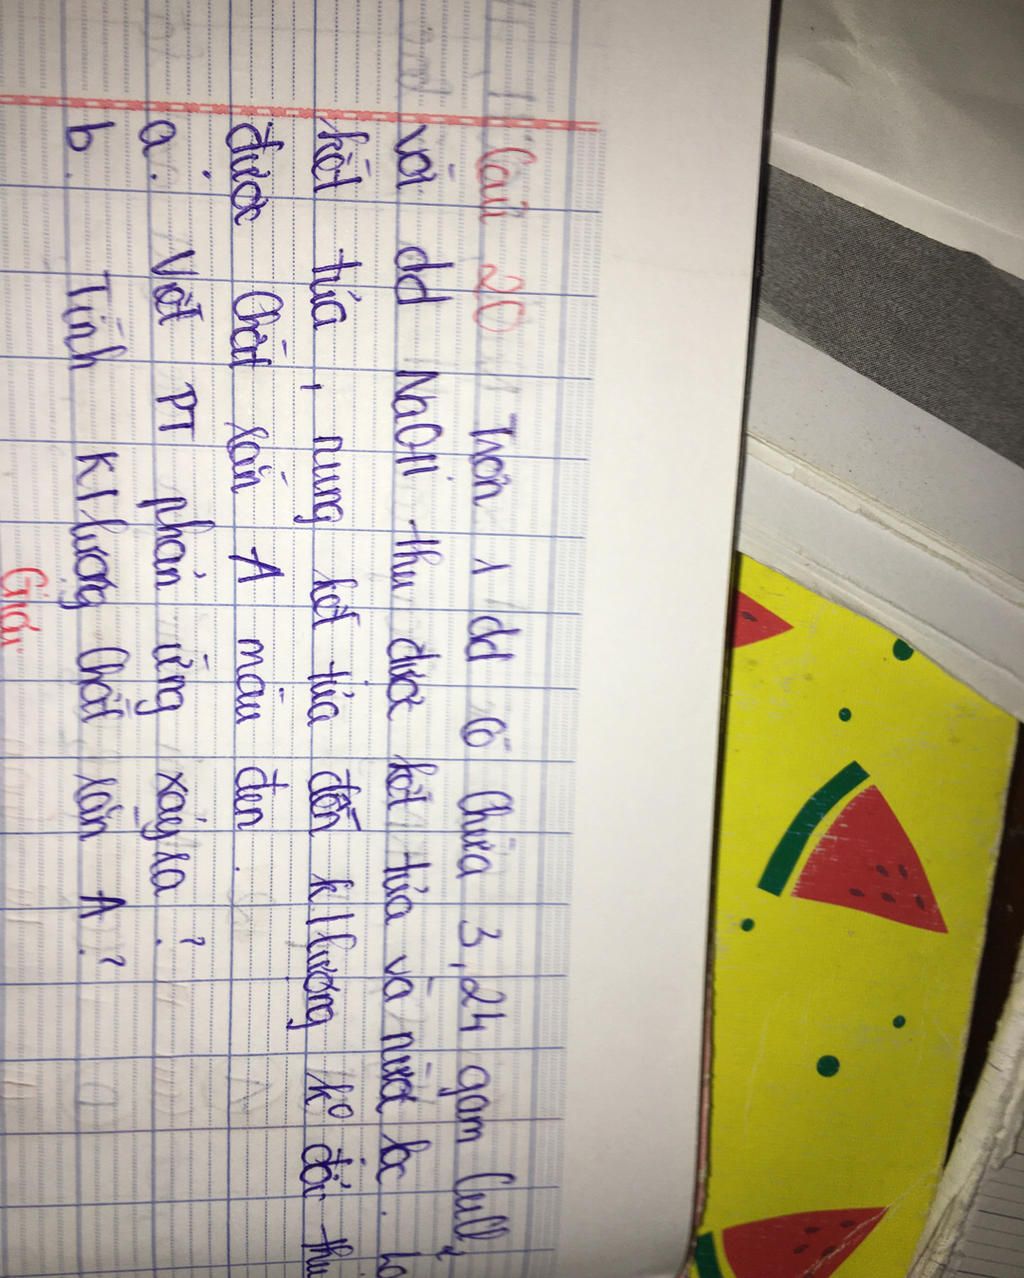 Câu 20 Trộn 1 dd có chứa 3,24 gam CuCl2
với dd NaOH thu được kết tủa và nước lọc.
kết tủa, nung kết tủa đến klượng ko đổi thu
được chất rắn A màu đen.
a. Viết PT phản ứng xảy ra?
b. Tính klượng chất rắn A?
Giải